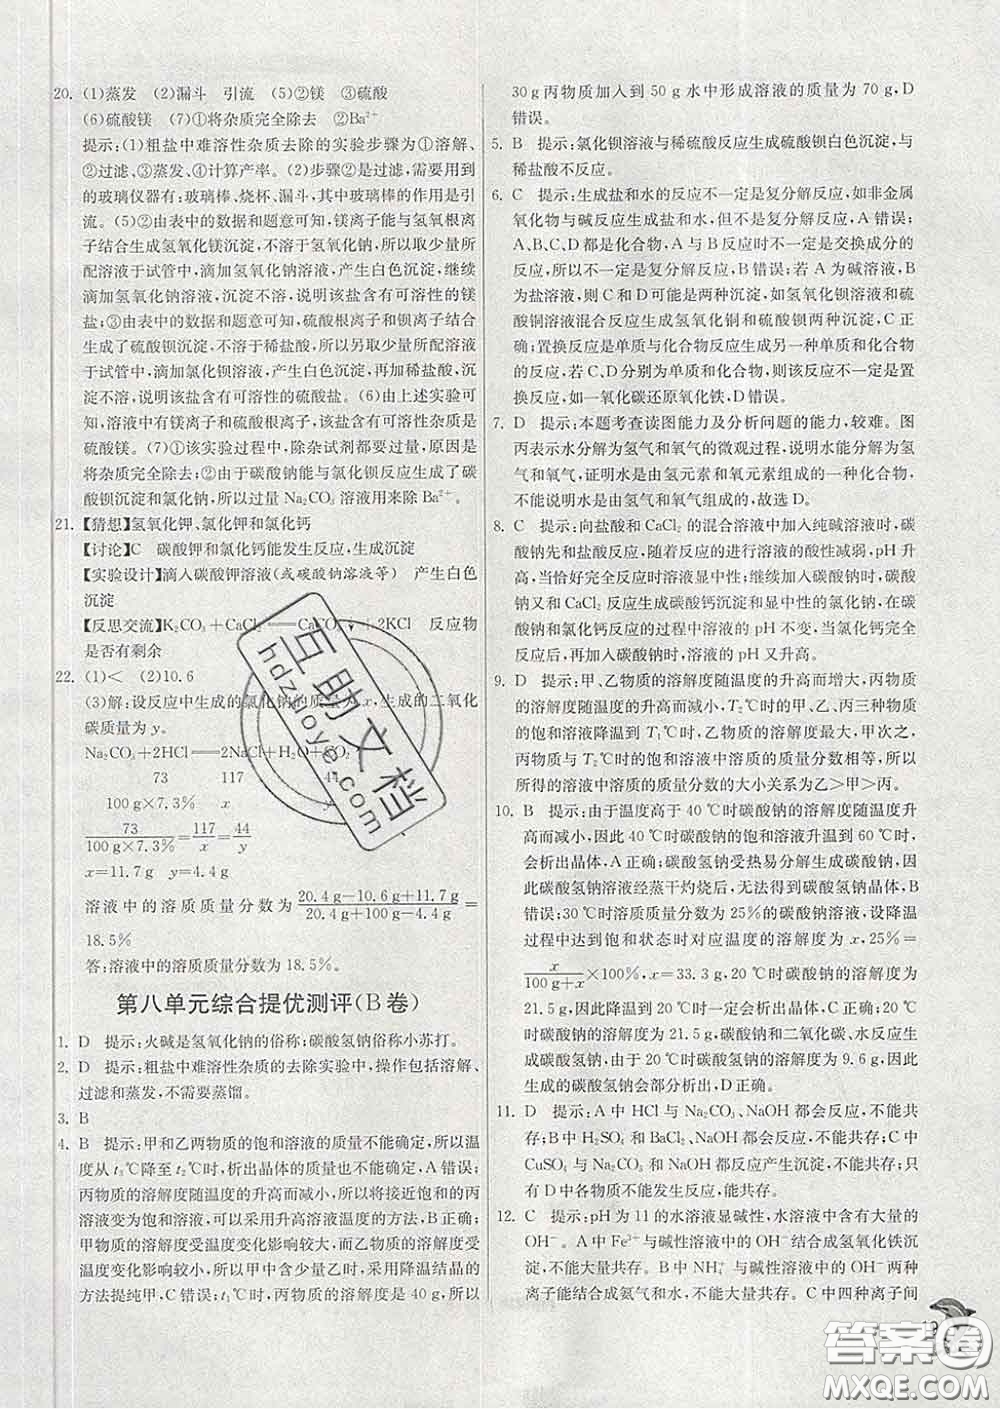 20. (1)蒸发 (2)漏斗 引流 (5)②镁 ③硫酸
(6)硫酸镁 (7)①将杂质完全除去 ②Ba²⁺
提示:(1)粗盐中难溶性杂质去除的实验步骤为①溶解、
②过滤、③蒸发、④计算产率。(2)步骤②是过滤,需要用到
的玻璃仪器有:玻璃棒、烧杯、漏斗,其中玻璃棒的作用是引
流。(5)②由表中的数据和题意可知,镁离子能与氢氧根离
子结合生成氢氧化镁沉淀,不溶于氢氧化钠,所以取少量所
配溶液于试管中,滴加氢氧化钠溶液,产生白色沉淀,继续
滴加氢氧化钠溶液,沉淀不溶,说明该盐含有可溶性的镁
盐;③由表中的数据和题意可知,硫酸根离子和钡离子结合
生成了硫酸钡沉淀,不溶于稀盐酸,所以另取少量所配溶液
于试管中,滴加氯化钡溶液,产生白色沉淀,再加稀盐酸,沉
淀不溶,说明该盐含有可溶性的硫酸盐。(6)由上述实验可
知,溶液中有镁离子和硫酸根离子,该盐含有可溶性杂质是
硫酸镁。(7)①该实验过程中,除杂试剂都要过量,原因是
将杂质完全除去;②由于碳酸钠能与氯化钡反应生成了碳
酸钡沉淀和氯化钠,所以过量 Na₂CO₃ 溶液用来除 Ba²⁺。
21. 【猜想】氢氧化钾、氯化钾和氯化钙
【讨论】C 碳酸钾和氯化钙能发生反应,生成沉淀
【实验设计】滴入碳酸钾溶液(或碳酸钠溶液等) 产生白色
沉淀
【反思交流】K₂CO₃+CaCl₂══CaCO₃↓+2KCl 反应物
是否有剩余
22. (1)< (2)10.6
(3)解:设反应中生成的氯化钠的质量为 x,生成的二氧化
碳质量为 y。
Na₂CO₃+2HCl══2NaCl+H₂O+CO₂↑
73 117 44
100 g×7.3% x y
73/(100 g×7.3%)=117/x=44/y
x=11.7 g y=4.4 g
溶液中的溶质质量分数为(20.4 g−10.6 g+11.7 g)/(20.4 g+100 g−4.4 g)=
18.5%
答:溶液中的溶质质量分数为 18.5%。
第八单元综合提优测评(B卷)
1. D 提示:火碱是氢氧化钠的俗称;碳酸氢钠俗称小苏打。
2. D 提示:粗盐中难溶性杂质的去除实验中,操作包括溶解、
过滤和蒸发,不需要蒸馏。
3. B
4. B 提示:甲和乙两物质的饱和溶液的质量不能确定,所以温
度从 t₃℃降至 t₂℃时,析出晶体的质量也不能确定,A 错误;
丙物质的溶解度随温度的升高而减小,所以将接近饱和的丙
溶液变为饱和溶液,可以采用升高溶液温度的方法,B 正确;
甲物质的溶解度受温度变化影响较大,而乙物质的溶解度受
温度变化影响较小,所以甲中含有少量乙时,采用降温结晶的
方法提纯甲,C 错误;t₁℃时,丙物质的溶解度是 40 g,所以
30 g 丙物质加入到 50 g 水中形成溶液的质量为 70 g,D
错误。
5. B 提示:氯化钡溶液与稀硫酸反应生成硫酸钡白色沉淀,与
稀盐酸不反应。
6. C 提示:生成盐和水的反应不一定是复分解反应,如非金属
氧化物与碱反应生成盐和水,但不是复分解反应,A 错误;
A、B、C、D 都是化合物,A 与 B 反应时不一定是交换成分的
反应,所以不一定是复分解反应,B 错误;若 A 为碱溶液,B
为盐溶液,则 C 和 D 可能是两种沉淀,如氢氧化钡溶液和硫
酸铜溶液混合反应生成氢氧化铜和硫酸钡两种沉淀,C 正
确;置换反应是单质与化合物反应生成另一种单质和另一种
化合物的反应,若 C、D 分别为单质和化合物,则该反应不一
定是置换反应,如一氧化碳还原氧化铁,D 错误。
7. D 提示:本题考查读图能力及分析问题的能力,较难。图
丙表示水分解为氢气和氧气的微观过程,说明水能分解为氢
气和氧气,证明水是由氢元素和氧元素组成的一种化合物,
不能说明水是由氢气和氧气组成的,故选 D。
8. C 提示:向盐酸和 CaCl₂ 的混合溶液中加入纯碱溶液时,碳
酸钠先和盐酸反应,随着反应的进行溶液的酸性减弱,pH 升
高,当恰好完全反应时溶液显中性;继续加入碳酸钠时,碳酸
钠又和 CaCl₂ 反应生成碳酸钙沉淀和显中性的氯化钠,在碳酸
钠和氯化钙反应的过程中溶液的 pH 不变,当氯化钙完全
反应后,再加入碳酸钠时,溶液的 pH 又升高。
9. D 提示:甲、乙物质的溶解度随温度的升高而增大,丙物质
的溶解度随温度的升高而减小,T₂℃时的甲、乙、丙三种物质
的饱和溶液降温到 T₁℃时,乙物质的溶解度最大,甲次之,
丙物质与 T₂℃时的饱和溶液中溶质的质量分数相等,所以
所得的溶液中溶质的质量分数的大小关系为乙>甲>丙。
10. B 提示:由于温度高于 40 ℃时碳酸钠的溶解度随温度升
高而减小,因此 40 ℃时碳酸钠的饱和溶液升温到 60 ℃时,
会析出晶体,A 正确;碳酸氢钠受热易分解生成碳酸钠,因
此碳酸氢钠溶液经蒸干灼烧后,无法得到碳酸氢钠晶体,B
错误;30 ℃时溶质质量分数为 25%的碳酸钠溶液,设降温
过程中达到饱和状态时对应温度的溶解度为 x,25%=
x/(100 g+x)×100%,x=33.3 g,20 ℃时碳酸钠的溶解度为
21.5 g,因此降温到 20 ℃时一定会析出晶体,C 正确;20 ℃
时碳酸钠的溶解度为 21.5 g,碳酸钠和二氧化碳、水反应生
成碳酸氢钠,由于 20 ℃时碳酸氢钠的溶解度为 9.6 g,因此
生成的碳酸氢钠会部分析出,D 正确。
11. D 提示:A 中 HCl 与 Na₂CO₃、NaOH 都会反应,不能共
存;B 中 H₂SO₄ 和 BaCl₂、NaOH 都会反应,不能共存;C 中
CuSO₄ 与 Na₂CO₃ 和 NaOH 都反应产生沉淀,不能共存;只
有 D 中各物质不能发生反应,可大量共存。
12. C 提示:pH 为 11 的水溶液显碱性,水溶液中含有大量的
OH⁻。A 中 Fe³⁺与碱性溶液中的 OH⁻结合成氢氧化铁沉
淀,不能大量共存。B 中 NH₄⁺ 与碱性溶液中的 OH⁻两种
离子能结合成氨气和水,不能大量共存。C 中四种离子间
互助文档
hdzuoye.com
答案圈
MXQE.COM